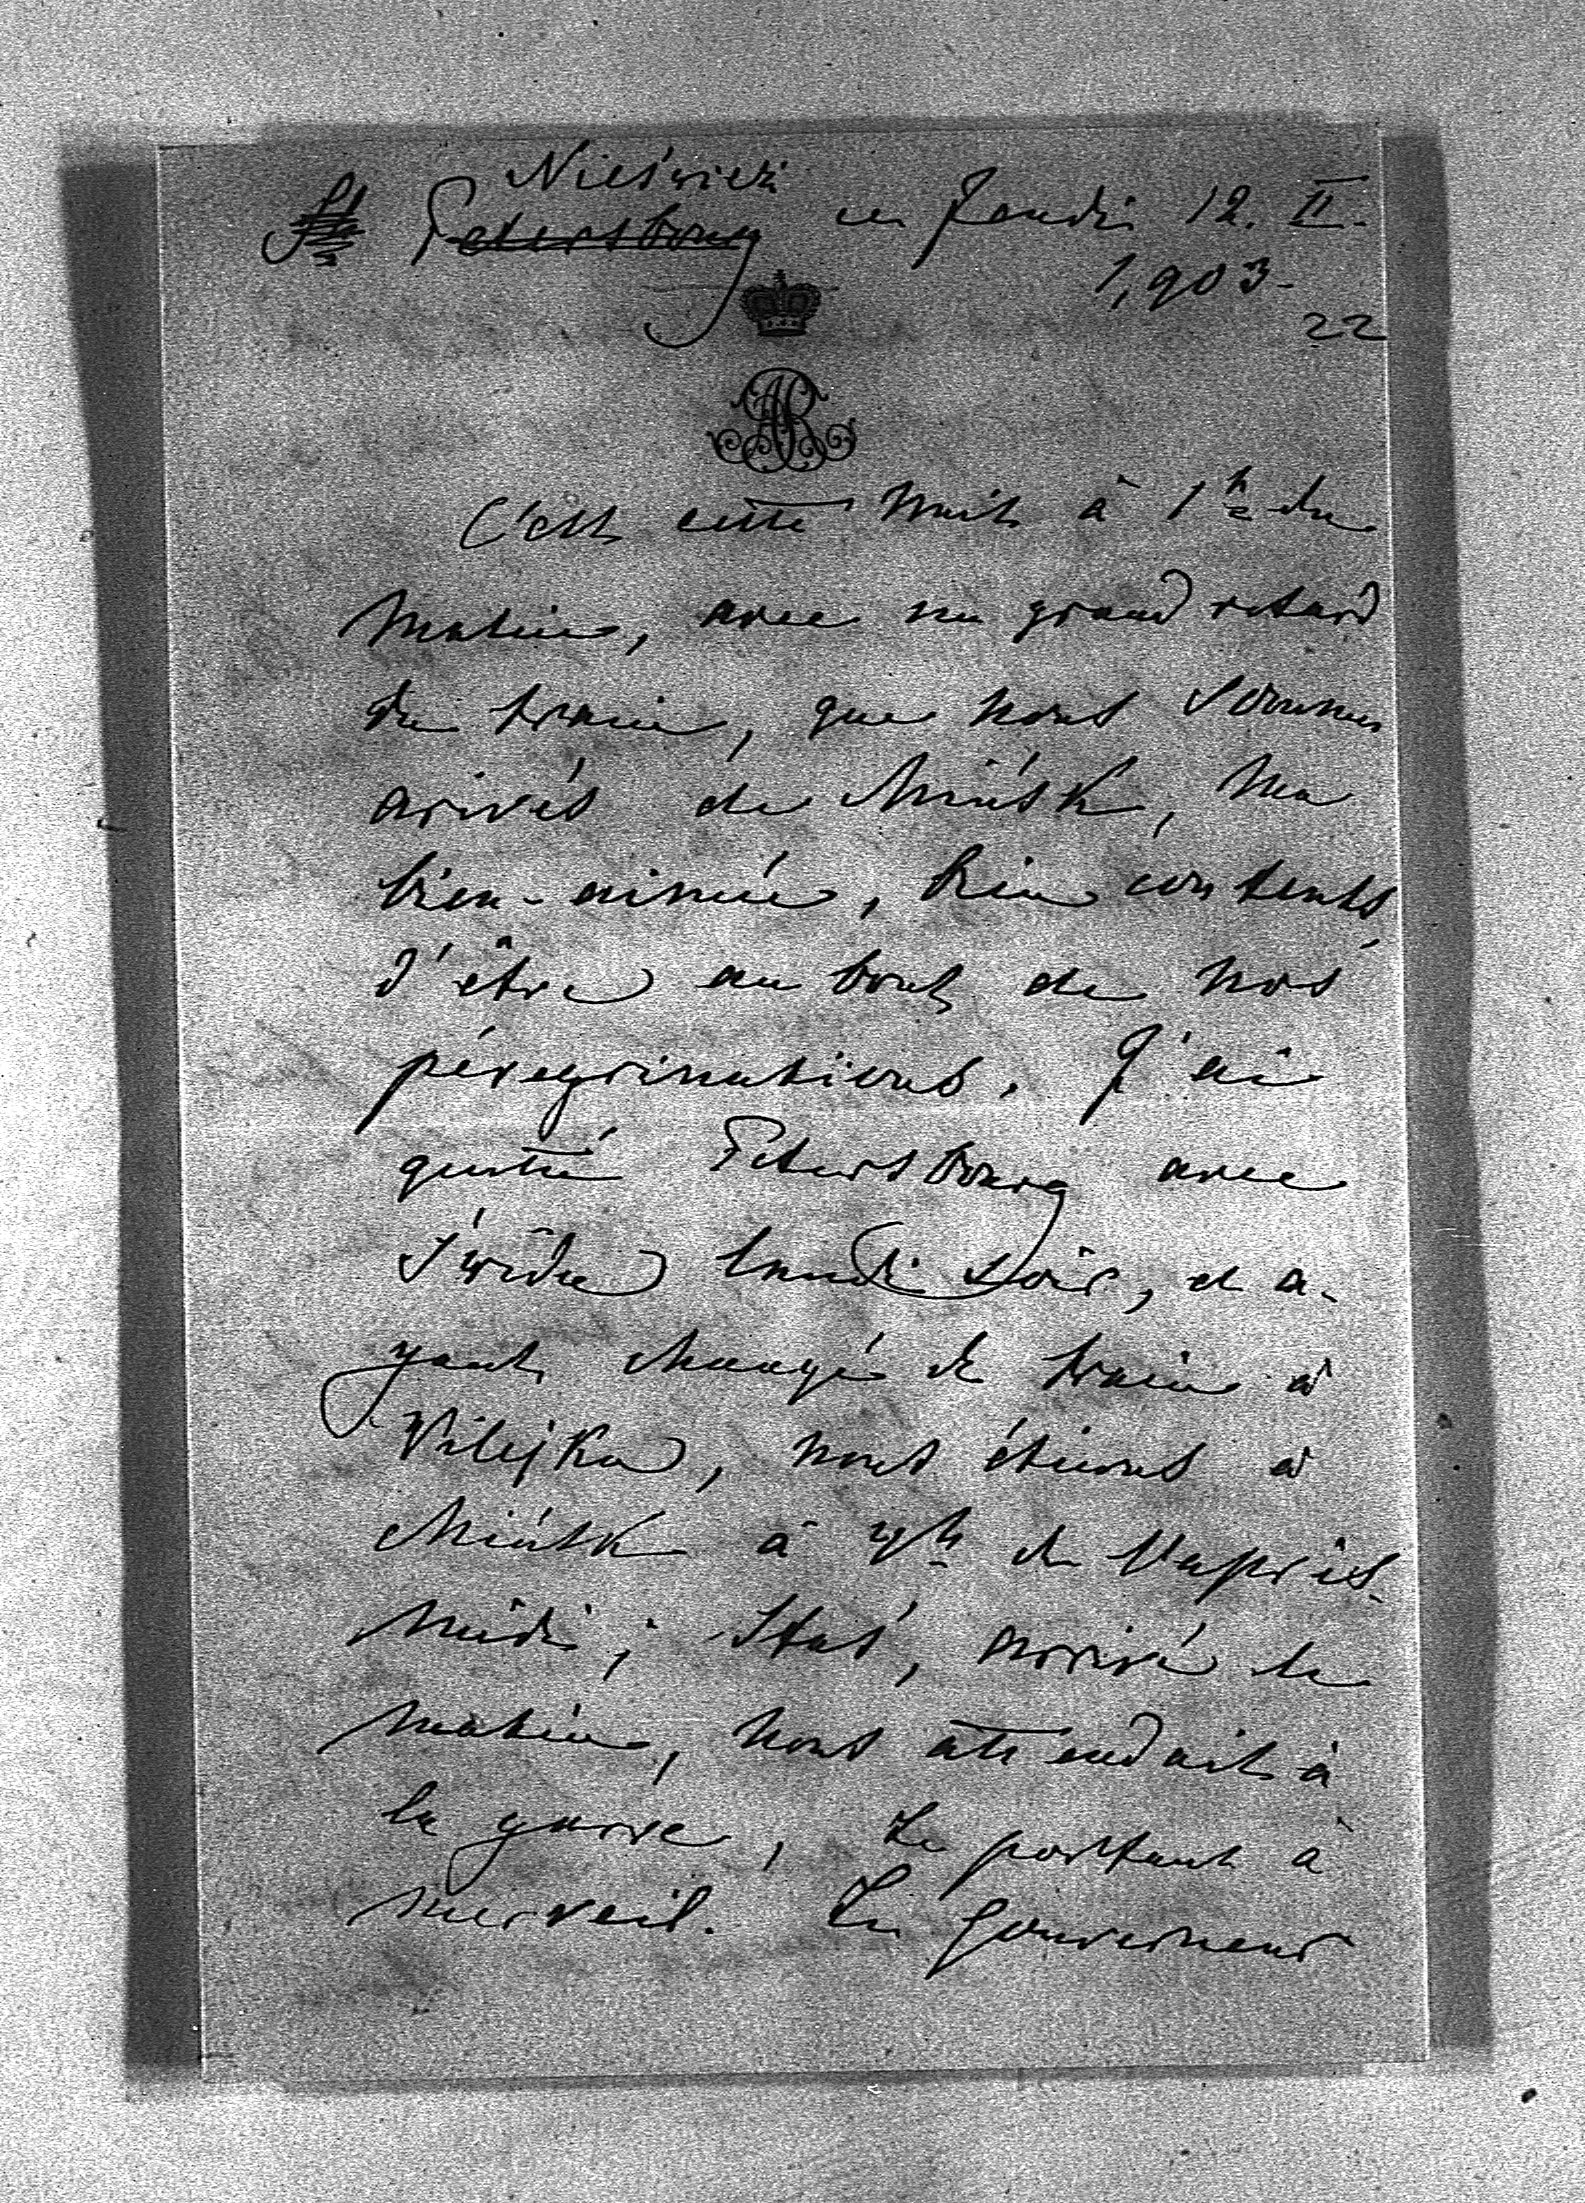 Nieśwież
St Petersbourg ce Jeudi 12. II.
1,903-
22
AR
C'est cette nuit à 1 h du
matin, avec un grand retard
du train, que nous sommes
arivés de Mińsk, ma
bien-aimée, bien contents
d'être au bout de nos
pérégrinations. J'ai
quitté Petersbourg avec
lundi soir, et a-
yant changé de train à
Vilejka, nous étions à
Mińsk à h de l'après
midi; Staś, arrivé le
matin, nous attendait à
la garre, se portant à
merveil. Le gouverneur